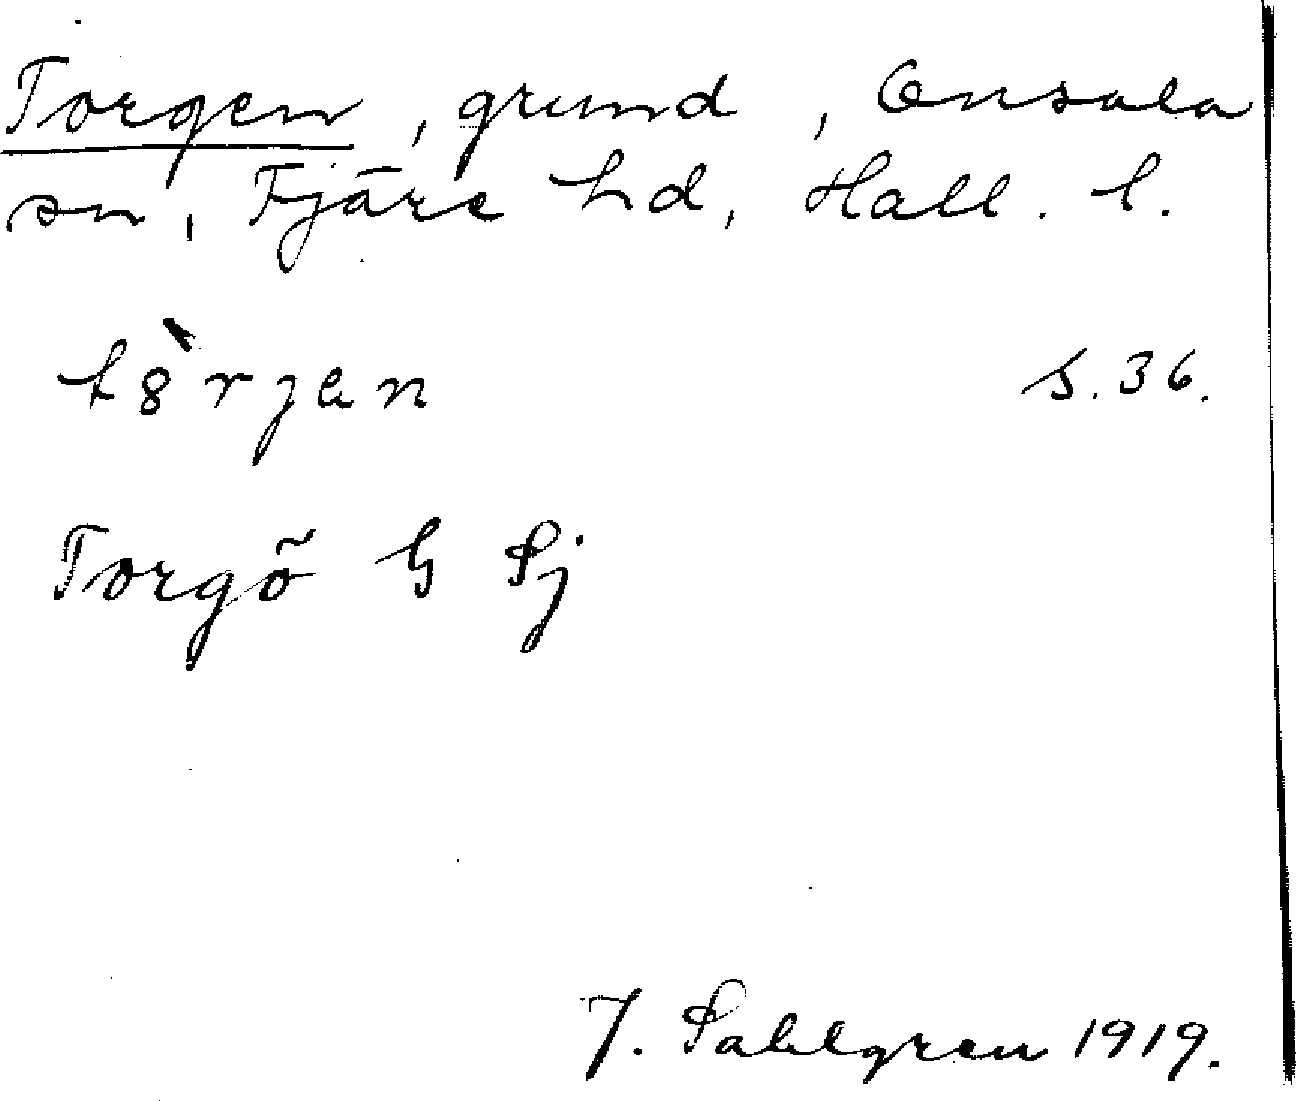 Torgen, grund, Onsala
sn, Fjäre hd, Hall. l.
t8̀rjen S. 36.
Torgö G Sj
J. Sahlgren 1919.